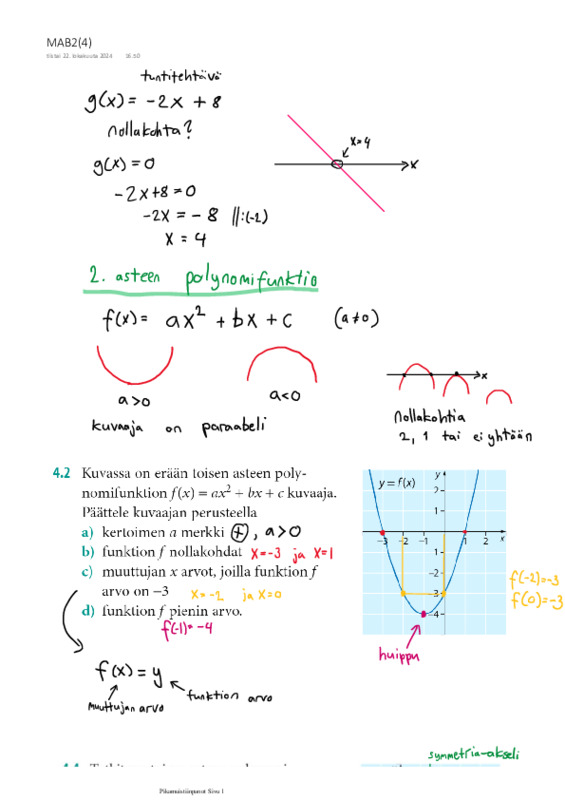 MAB2(4)
tiistai 22. lokakuuta 2024 16.50
tuntitehtävä
g(x) = -2x + 8
nollakohta?
x=4
x
g(x) = 0
-2x+8=0
-2x = -8 ||:(-2)
x = 4
2. asteen polynomifunktio
f(x) = ax² + bx + c (a≠0)
a>0
a<0
x
kuvaaja on paraabeli
nollakohtia
2, 1 tai ei yhtään
4.2 Kuvassa on erään toisen asteen poly-
nomifunktion f(x) = ax² + bx + c kuvaaja.
Päättele kuvaajan perusteella
a) kertoimen a merkki +, a>0
b) funktion f nollakohdat x=-3 ja x=1
c) muuttujan x arvot, joilla funktion f
arvo on −3 x=-2 ja x=0
d) funktion f pienin arvo.
f(-1)=-4
y = f(x)
y
2
1
-3 -2 -1 1 2 x
1
-2
-3
-4
f(-2)=-3
f(0)=-3
huippu
f(x) = y
muuttujan arvo
funktion arvo
symmetria-akseli
Pikamuistiinpanot Sivu 1